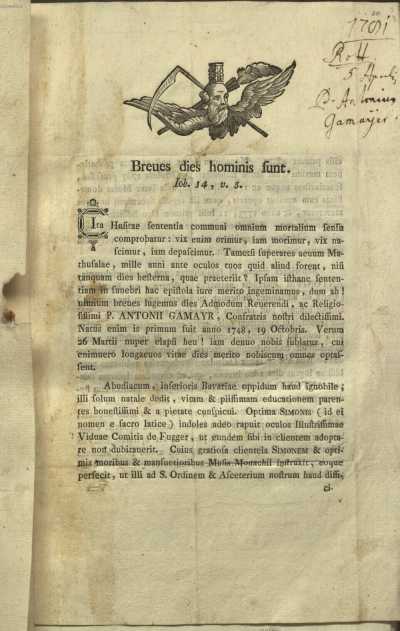 1791
Rott
5 Aprilis
P. Antonius
Gamayer.
Breues dies hominis sunt.
Iob. 14, v. 5.
Ita Husiticae sententia communi omnium mortalium sensu
comprobatur: vix enim orimur, iam morimur, vix na-
scimur, iam depascimur. Tametsi superares aeuum Ma-
thusalae, mille anni ante oculos tuos quid aliud forent, nisi
tanquam dies hesterna, quae praeteriit? Ipsam isthanc senten-
tiam in funebri hac epistola iure merito ingeminamus, dum ah!
nimium breues lugemus dies Admodum Reuerendi, ac Religio-
sissimi P. ANTONII GAMAYR, Confratris nostri dilectissimi.
Natus enim is primum fuit anno 1748, 19 Octobris. Verum
26 Martii nuper elapsi heu! iam denuo nobis sublatus, cui
enimuero longaeuos vitae dies merito nobiscum omnes optas-
sent.
Abudiacum, inferioris Bavariae oppidum haud ignobile;
illi solum natale dedit, vitam & piissimam educationem paren-
tes honestissimi & a pietate conspicui. Optima SIMONIS (id ei
nomen e sacro latice) indoles adeo rapuit oculos Illustrissimae
Viduae Comitis de Fugger, ut eundem sibi in clientem adopta-
re non dubitauerit. Cuius gratiosa clientela SIMONEM & opti-
mis moribus & mansuetioribus Musis Monachii instruxit, eoque
perfecit, ut illi ad S. Ordinem & Asceterium nostrum haud diffi-
ci-